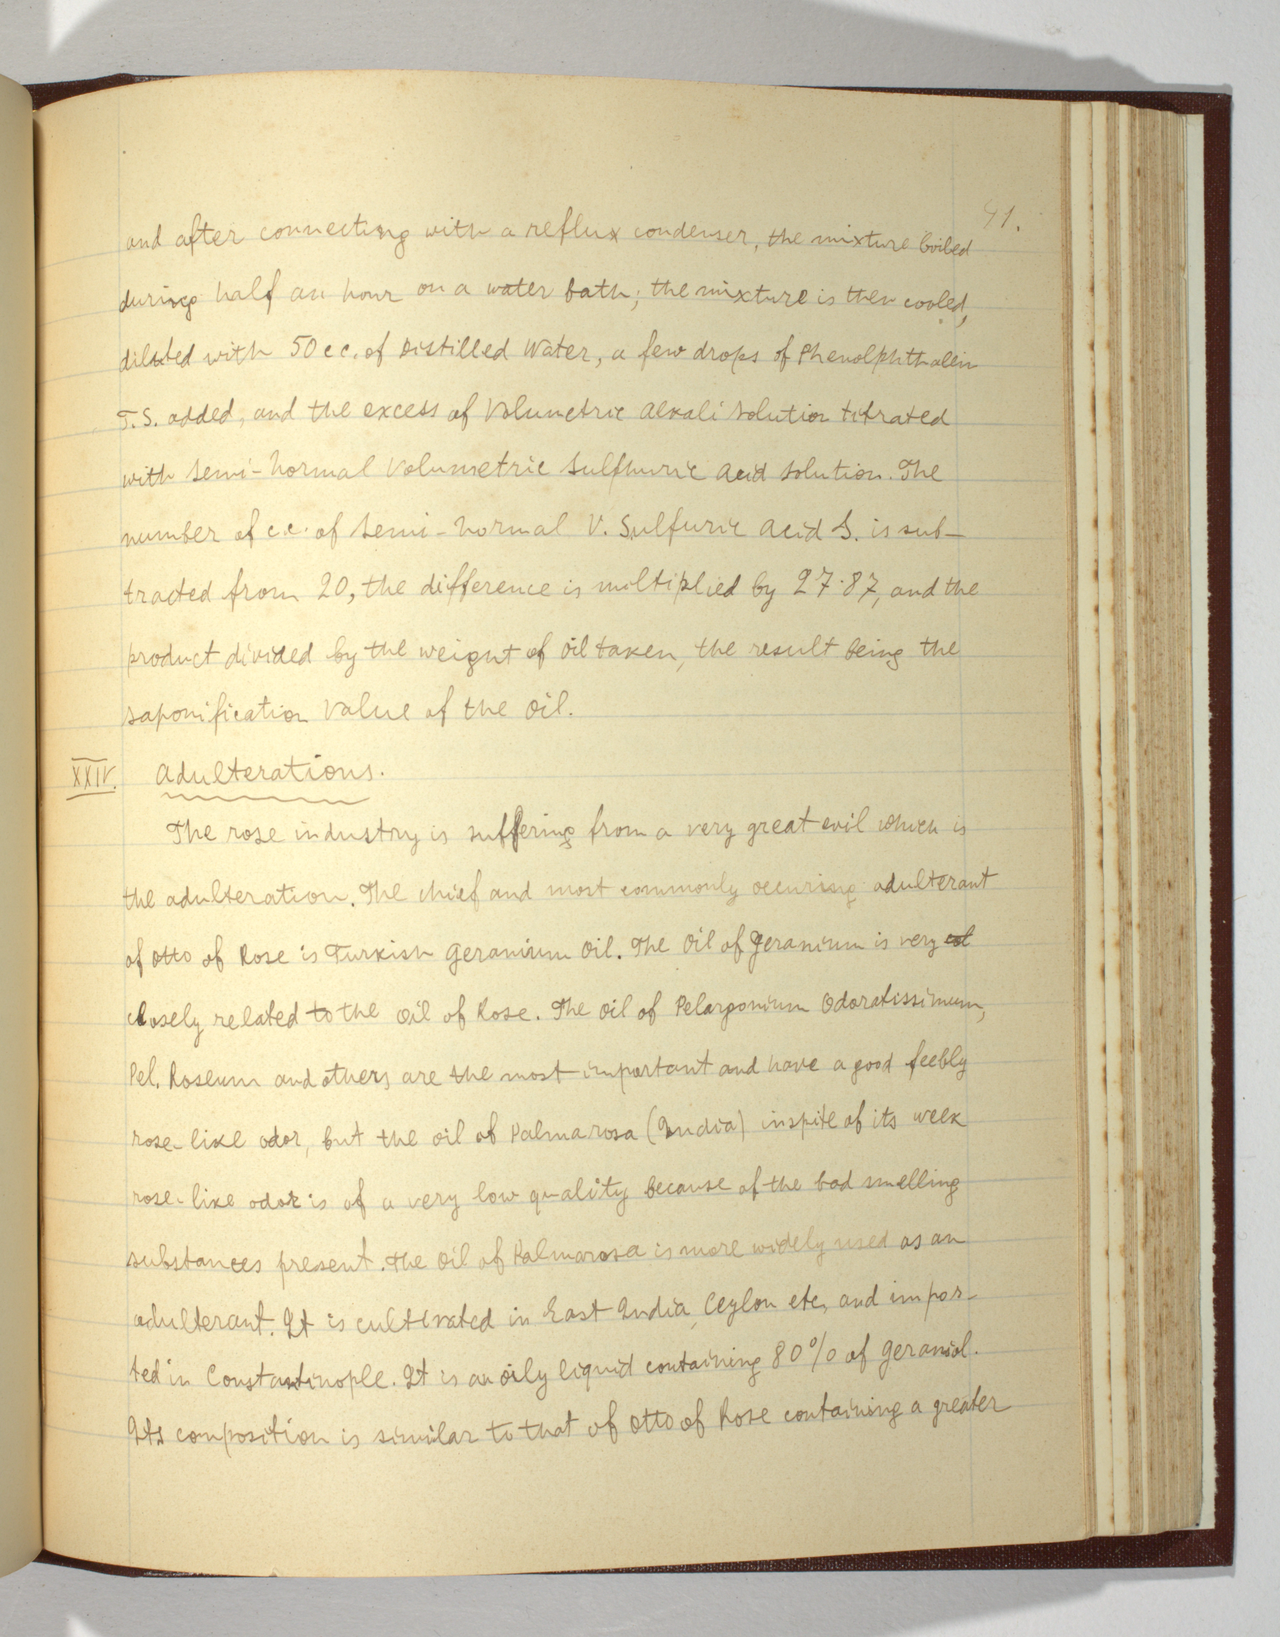 41.
and after connecting with a reflux condenser, the mixture boiled
during half an hour on a water bath; the mixture is then cooled,
diluted with 50 c.c. of Distilled Water, a few drops of Phenolphthalein
T.S. added, and the excess of Volumetric Alkali Solution titrated
with Semi-Normal Volumetric Sulfhuric Acid Solution. The
number of c.c. of Semi-Normal V. Sulfuric Acid S. is sub-
tracted from 20, the difference is moltiplied by 27·87, and the
product divided by the weignt of oil taken, the result being the
saponification Value of the Oil.
XXIV. Adulterations.
The rose industry is suffering from a very great evil which is
the adulteration. The chief and most commonly occuring adulterant
of Otto of Rose is Turkish Geranium Oil. The Oil of Geranium is very col
closely related to the Oil of Rose. The Oil of Pelargonium Odoratissimum,
Pel. Roseum and others are the most important and have a good feebly
rose-like odor, but the oil of Palmarosa (India) inspite of its week
rose-like odor is of a very low quality because of the bad smelling
substances present. The Oil of Palmarosa is more widely used as an
adulterant. It is cultivated in East India, Ceylon etc, and impor-
ted in Constantinople. It is an oily liquid containing 80% of Geraniol.
Its composition is similar to that of Otto of Rose containing a greater